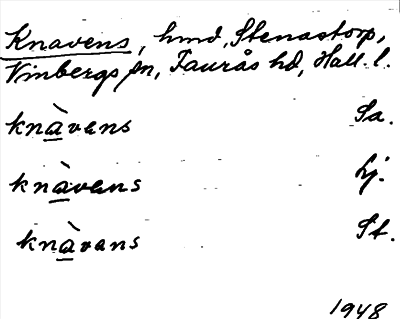 Knavens, hmd, Stenastorp,
Vinbergs sn, Faurås hd, Hall. l.
knàvans Sa.
knàvans Lj.
knàvans St.
1948